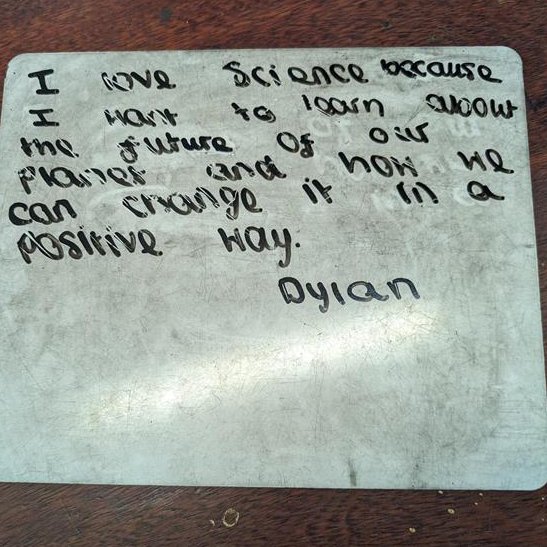 I love Science because
I want to learn about
the future of our
planet and how we
can change it in a
positive way.
Dylan